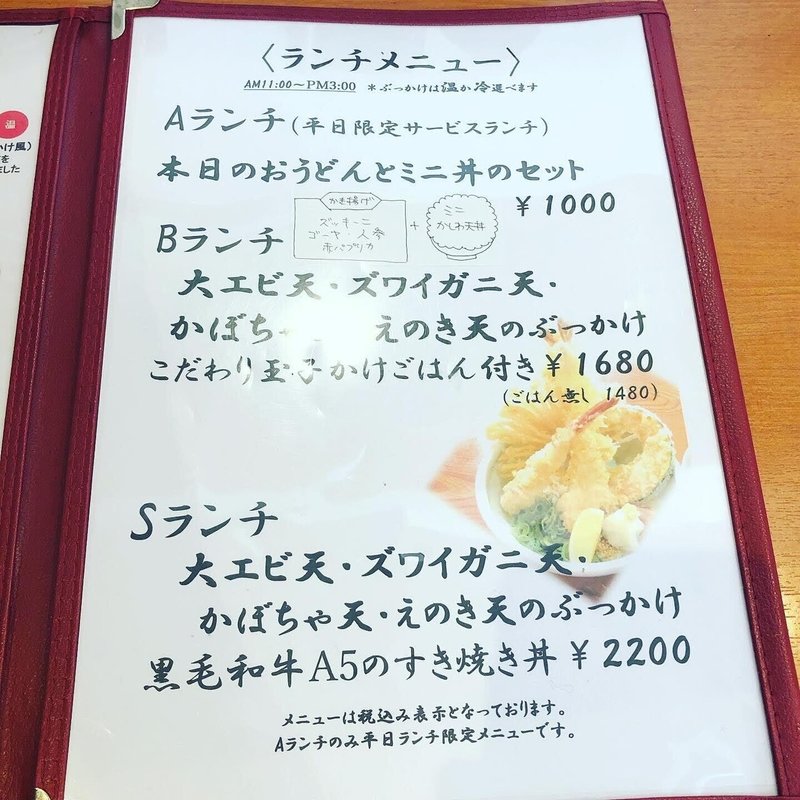 〈ランチメニュー〉
AM11:00～PM3:00 *ぶっかけは温か冷選べます
Aランチ(平日限定サービスランチ)
本日のおうどんとミニ丼のセット
¥1000
かき揚げ
ズッキーニ
ゴーヤ・人参
赤パプリカ
+
ミニ
かしわ天丼
Bランチ
大エビ天・ズワイガニ天・
かぼちゃ えのき天のぶっかけ
こだわり玉子かけごはん付き¥1680
(ごはん無し 1480)
Sランチ
大エビ天・ズワイガニ天・
かぼちゃ天・えのき天のぶっかけ
黒毛和牛A5のすき焼き丼¥2200
メニューは税込み表示となっております。
Aランチのみ平日ランチ限定メニューです。
温
かけ風)
を
ました